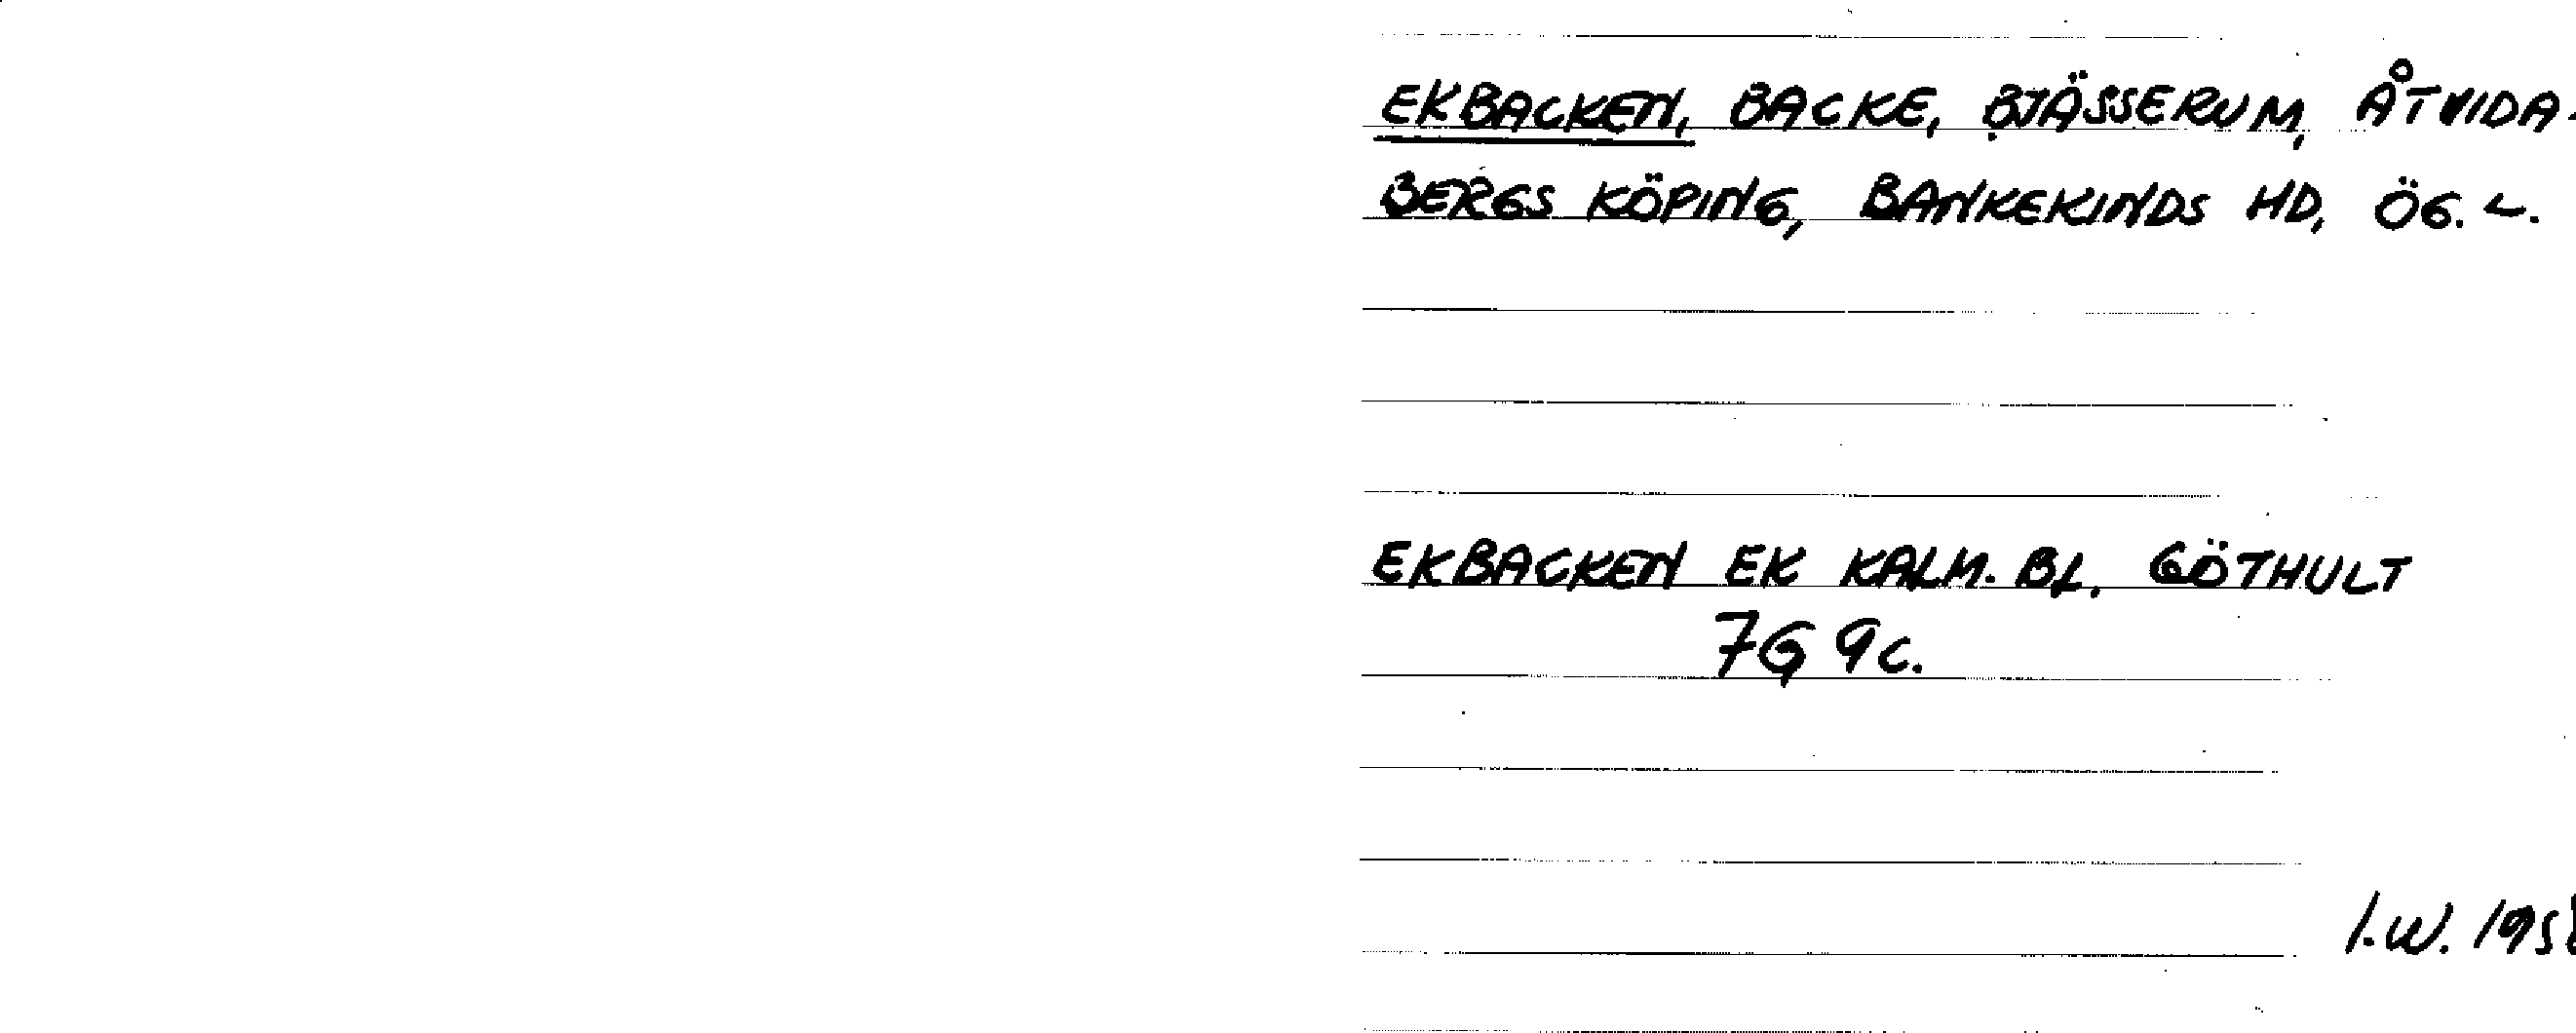 EKBACKEN, BACKE, BJÄSSERUM, ÅTVIDA-
BERGS KÖPING, BANKEKINDS HD, ÖG. L.
EKBACKEN EK KALM. BL. GÖTHULT
7G 9c.
I.W.